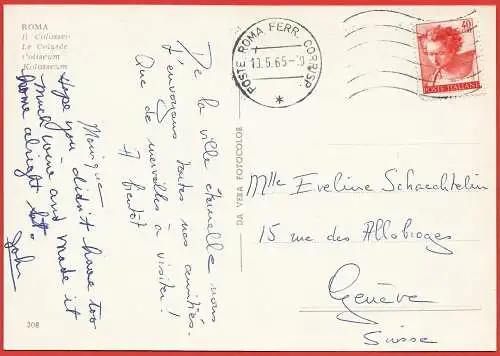 ROMA
Il Colosseo
Le Colysée
Coliseum
Kolosseum
De la ville éternelle nous
t'envoyons toutes nos amitiés.
Que de merveilles à visiter!
A bientôt
Monique
Hope you didn't have too
much wine and made it
home alright
John
208
DA VERA FOTOCOLOR
POSTE ROMA FERR. CORRISP.
13.5.65
*
40
POSTE ITALIANE
Mlle Eveline Schaechtelin
15 rue des Allobroges
Genève
Suisse